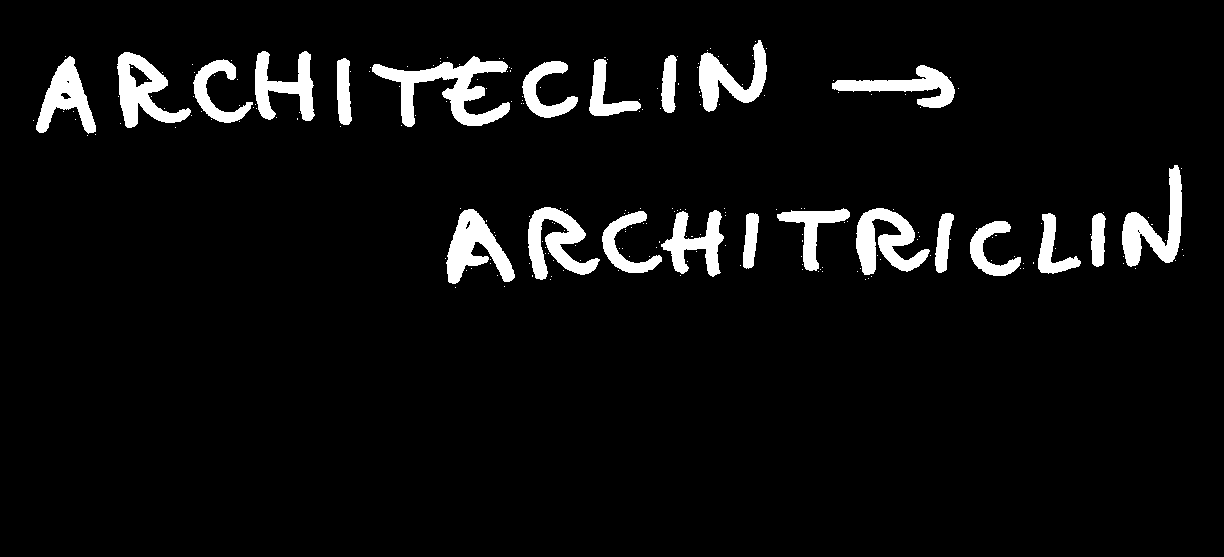 ARCHITECLIN →
ARCHITRICLIN